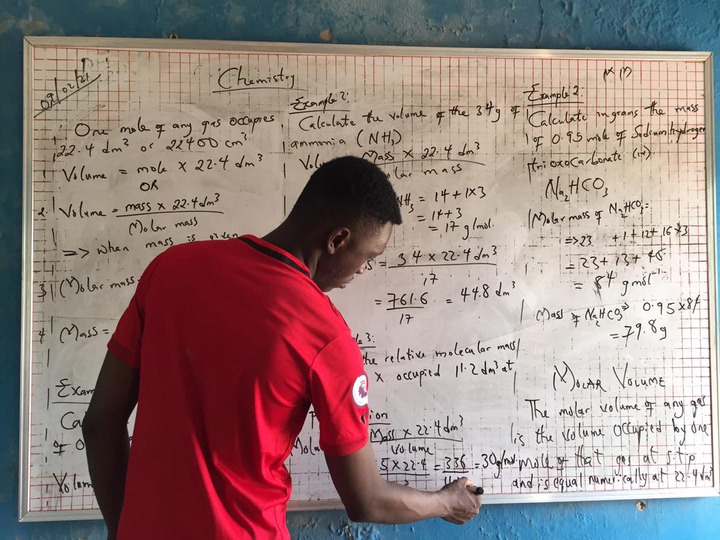 09/02/21
Chemistry
One mole of any gas occupies
22.4 dm³ or 22400 cm³
1 Volume = mole × 22.4 dm³
OR
2. Volume = mass × 22.4 dm³
Molar mass
=> when mass is given
3 Molar mass
4 Mass =
Exam
Ca
of
Volum
Example 2:
Calculate the volume of the 34g of
ammonia (NH₃)
Volu Mass × 22.4 dm³
olar mass
H₃ = 14 + 1×3
= 14 + 3
= 17 g/mol.
= 34 × 22.4 dm³
17
= 761.6 = 44.8 dm³
17
le 3:
the relative molecular mass
X occupied 11.2 dm³ at
ion
Mola Mass × 22.4 dm³
Volume
5 × 22.4 = 336 = 30 g/mol
Example 2:
Calculate in grams the mass
of 0.95 mole of Sodium hydrogen
trioxocarbonate (iv).
Na₂HCO₃
Molar mass of N₂HCO₃=
=> 23 + 1 + 12 + 16×3
= 23 + 13 + 48
= 84 gmol⁻¹
Mass of Na₂HCO₃ => 0.95 × 84
= 79.8 g
MOLAR VOLUME
The molar volume of any gas
is the volume occupied by one
mole of that gas at s.t.p
and is equal numerically at 22.4 dm³